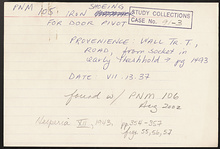 PNM 105: IRON SHOEING
FOR DOOR PIVOT
STUDY COLLECTIONS
CASE No.
PROVENIENCE: HALL TR. T,
ROAD, from socket in
early threshold → pg 1493
DATE VII.13.37
found w/ PNM 106
Aug 2002
Hesperia VI, 1943. pp 354-357
figs 55, 56, 57